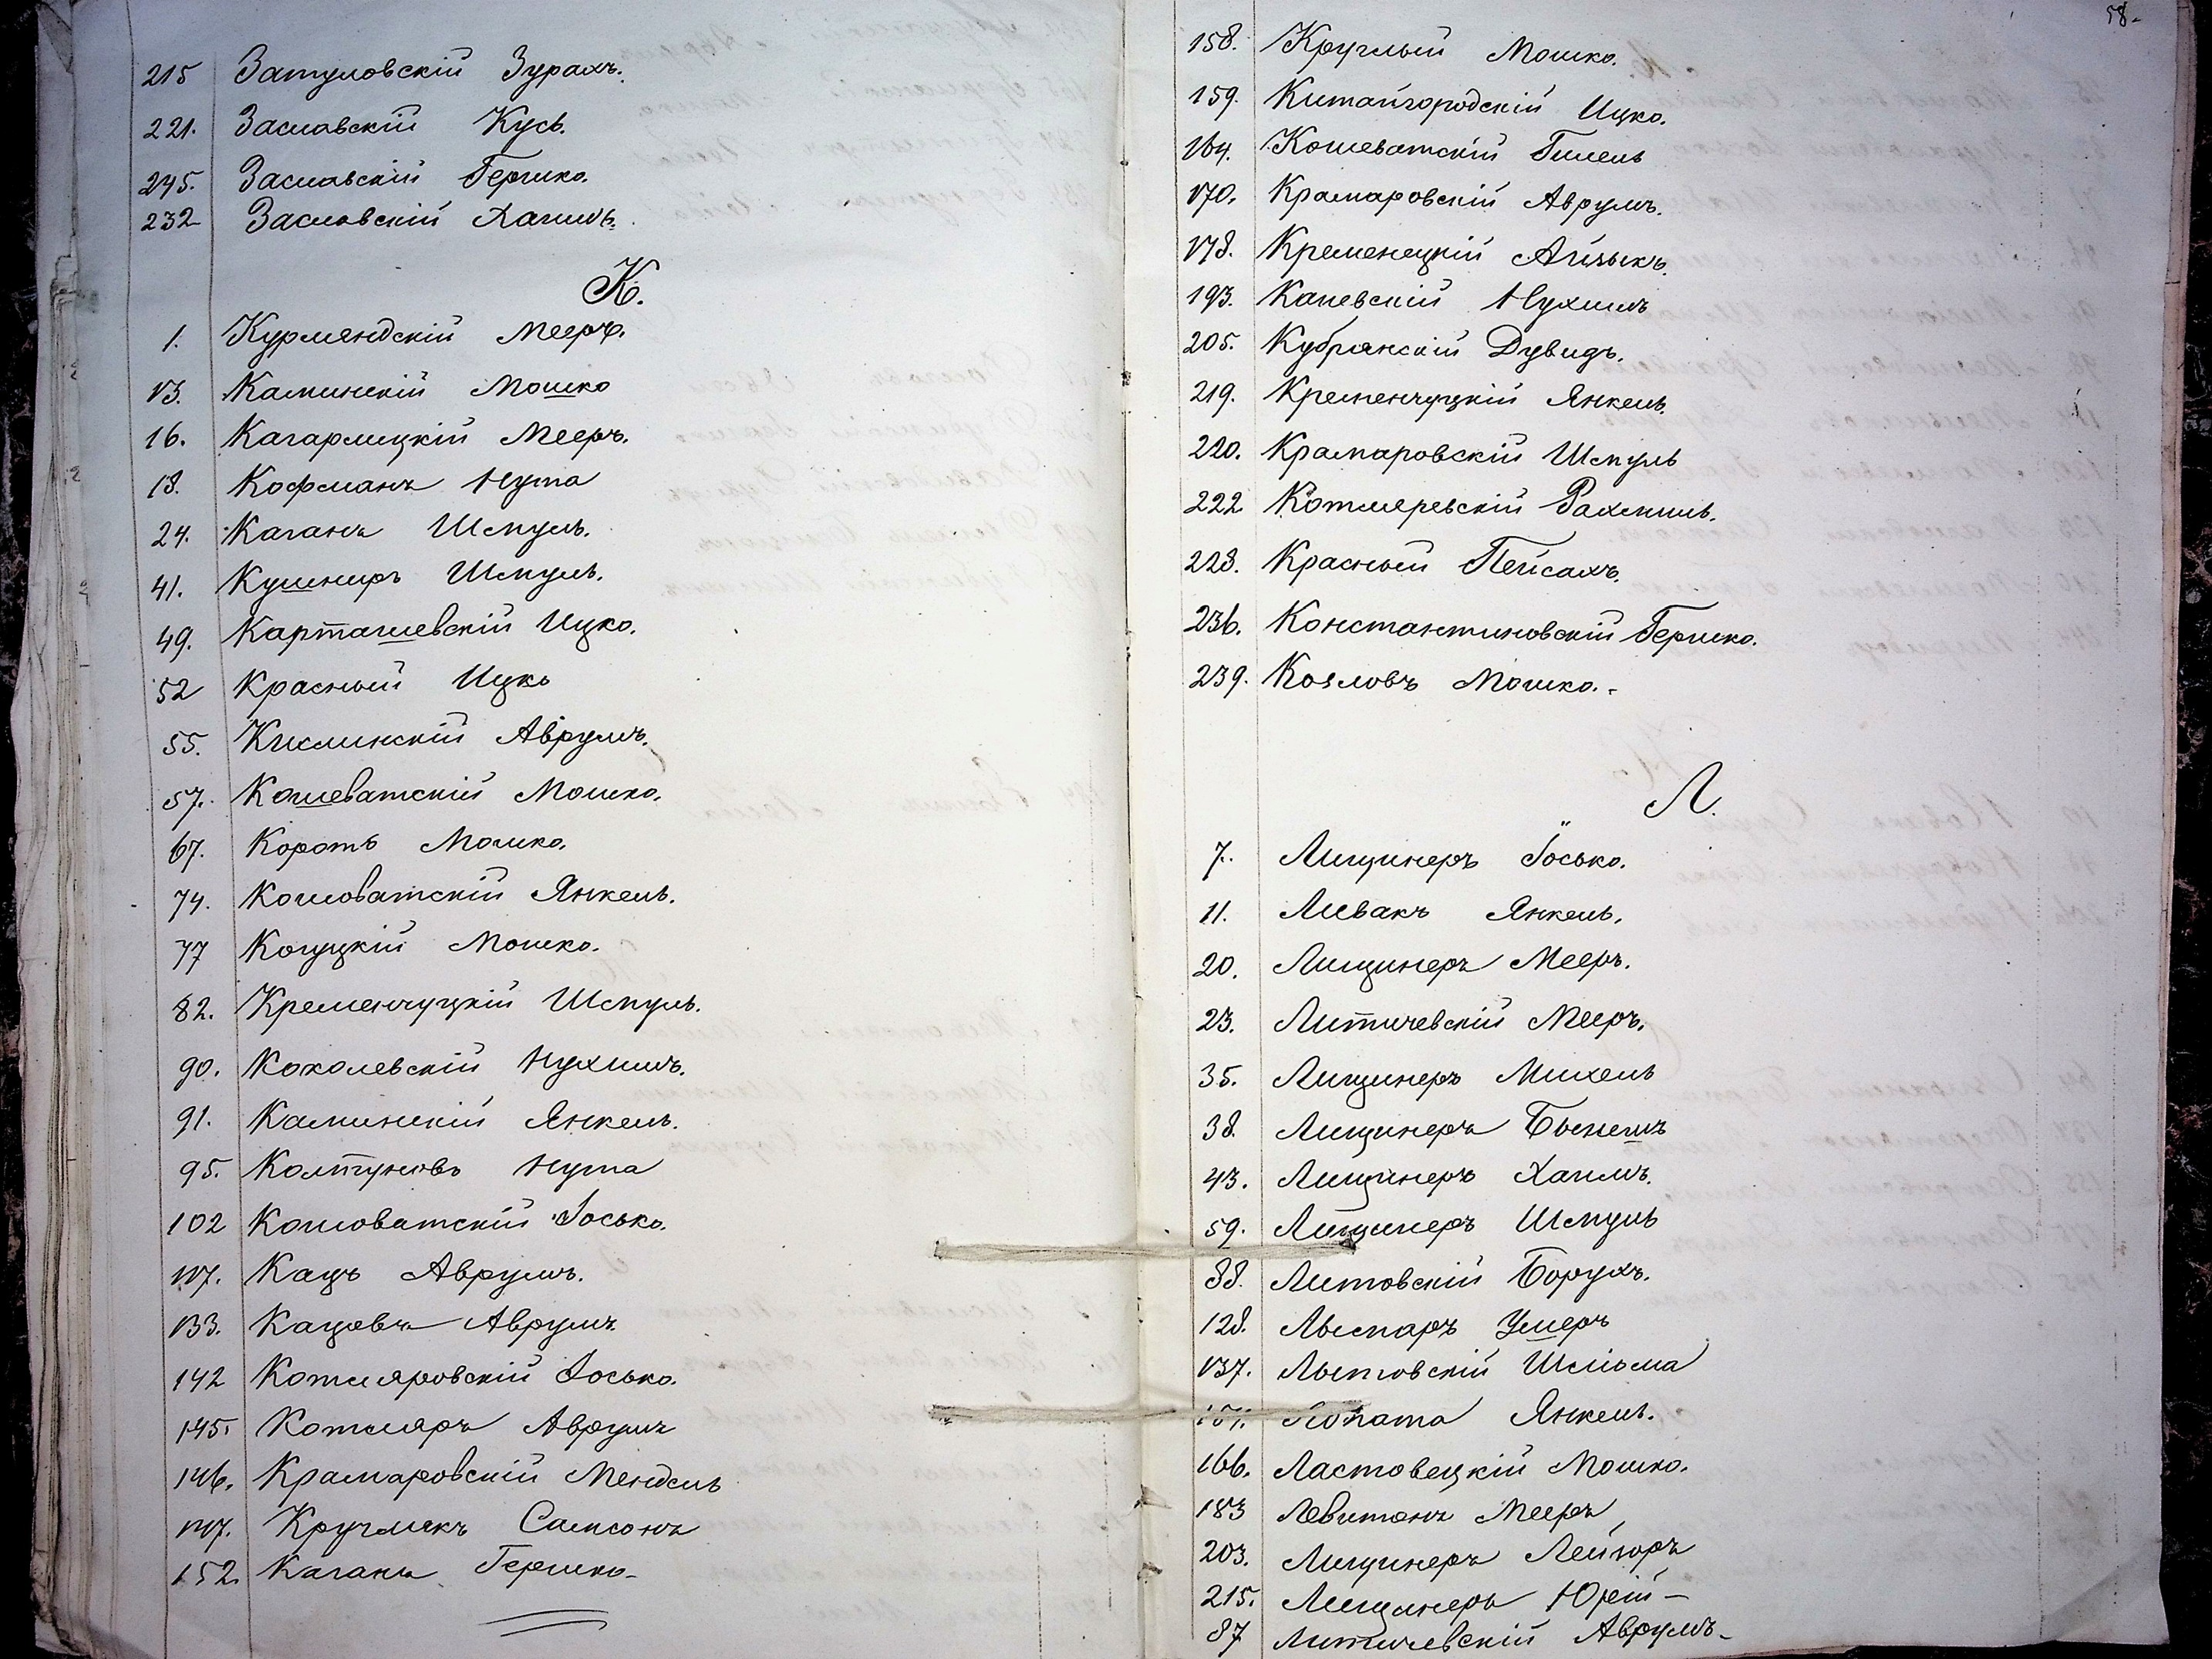 215 Затуловскій Зурахъ.
221. Заславскій Кусь.
245. Заславскій Гершко.
232 Заславскій Хаимъ.
К.
1. Курляндскій Мееръ.
13. Каминскій Мошко
16. Кагарлицкій Мееръ.
18. Кофманъ Нута
24. Каганъ Шмуль.
41. Кушниръ Шмуль.
49. Карташевскій Ицко.
52 Красный Ицко
55. Кислинскій Аврумъ.
57. Кошеватскій Мошко.
67. Коротъ Мошко.
74. Кошоватскій Янкель.
77 Когуцкій Мошко.
82. Кременчуцкій Шмуль.
90. Коколевскій Нухимъ.
91. Каминскій Янкель.
95. Колтуновъ Нута
102 Кошоватскій Іосько.
117. Кацъ Аврумъ.
133. Кацовъ Аврумъ
142 Котляровскій Іосько.
145. Котляръ Аврумъ
146. Крамаровскій Мендель
147. Кручлякъ Самсонъ
152. Каганъ Гершко-
58.
158. Круглый Мошко.
159. Китайгородскій Ицко.
164. Кошеватскій Гилель
170. Крамаровскій Аврумъ.
178. Кременецкій Айзыкъ.
193. Каневскій Нухимъ
205. Кубранскій Дувидъ.
219. Кременчуцкій Янкель.
220. Крамаровскій Шмуль
222 Котляревскій Рахмиль.
228. Красный Пейсахъ.
236. Константиновскій Гершко.
239. Козловъ Мошко.-
Л.
7. Лищинеръ Іосько.
11. Ливакъ Янкель.
20. Лищинеръ Мееръ.
23. Литичевскій Мееръ.
35. Лищинеръ Михель
38. Лищинеръ Бынешъ
43. Лищинеръ Хаимъ.
59. Лищинеръ Шмуль
88. Литовскій Борухъ.
128. Лымаръ Ушеръ
137. Лытовскій Шліома
Лопата Янкель.
166. Ластовецкій Мошко.
183 Левитанъ Мееръ
203. Лищинеръ Лейзоръ
215. Лищинеръ Юрій-
87 Литичевскій Аврумъ-